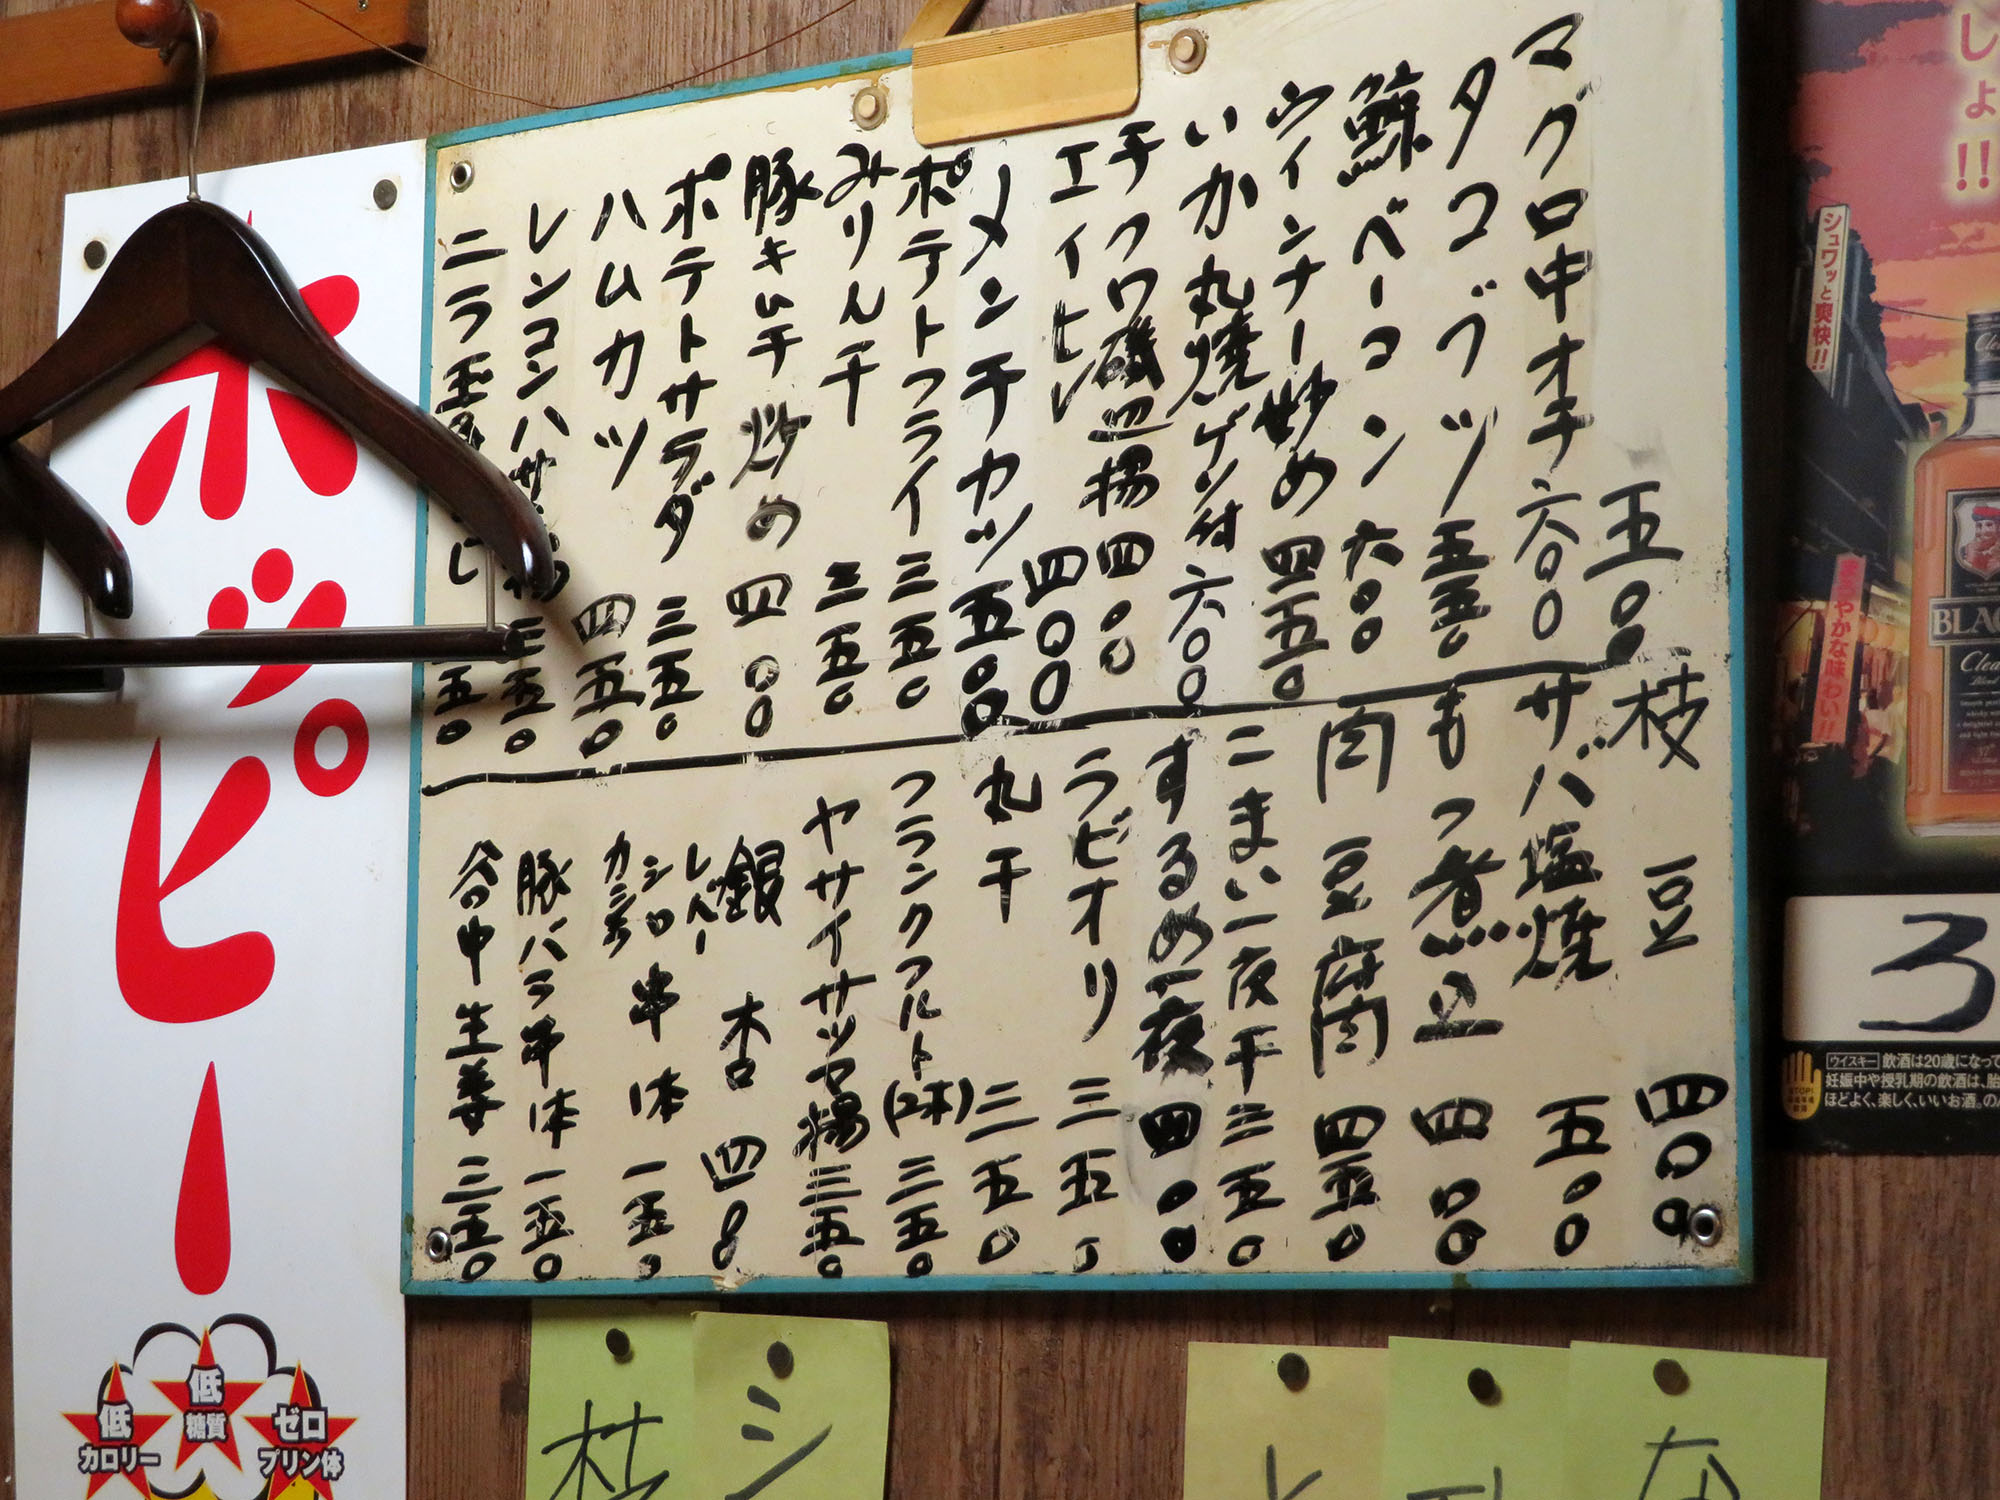 五〇〇
マグロ中オチ 六〇〇
タコブツ 五五〇
鯨ベーコン 六〇〇
ウィンナー炒め 四五〇
いか丸焼 ゲソ付 六〇〇
チクワ磯辺揚 四〇〇
エイヒレ 四〇〇
メンチカツ 五〇〇
ポテトフライ 三五〇
みりん干 三五〇
豚キムチ炒め 四〇〇
ポテトサラダ 三五〇
ハムカツ 四五〇
レンコンハサミ揚 三五〇
ニラ玉 五〇
枝豆 四〇〇
サバ塩焼 五〇〇
もつ煮込 四〇〇
肉豆腐 四五〇
こまい一夜干 三五〇
するめ一夜 四〇〇
ラビオリ 三五〇
丸干 三五〇
フランクフルト(2本) 三五〇
ヤサイサツマ揚 三五〇
銀杏 四〇〇
レバー
シロ
カシラ
串一本 一五〇
豚バラ串一本 一五〇
谷中生姜 三五〇
ホッピー
低カロリー
低糖質
ゼロプリン体
しょ!!
シュワッと爽快!!
まろやかな味わい!!
BLAC
Clea
3
ウイスキー 飲酒は20歳になって
妊娠中や授乳期の飲酒は、胎
ほどよく、楽しく、いいお酒。のん
シ
な